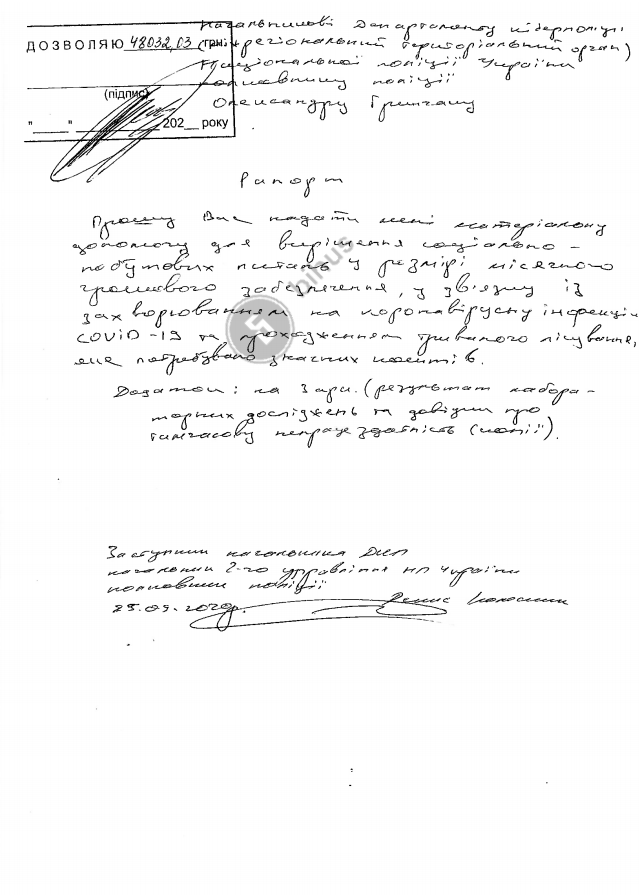 ДОЗВОЛЯЮ 48032,03 грн.
(підпис)
"___" ________ 202__ року
Начальникові Департаменту кіберполіції
(міжрегіональний територіальний орган)
Національної поліції України
полковнику поліції
Олександру Гринчаку
Рапорт
Прошу Вас надати мені матеріальну
допомогу для вирішення соціально-
побутових питань у розмірі місячного
грошового забезпечення, у зв'язку із
захворюванням на коронавірусну інфекцію
COVID-19 та проходженням тривалого лікування,
яке потребувало значних коштів.
Додаток: на 3 арк. (результат лабора-
торних досліджень та довідки про
тимчасову непрацездатність (копії).
Заступник начальника ДКП
начальник 2-го управління НП України
полковник поліції
25.09.2020р. Денис
bihus